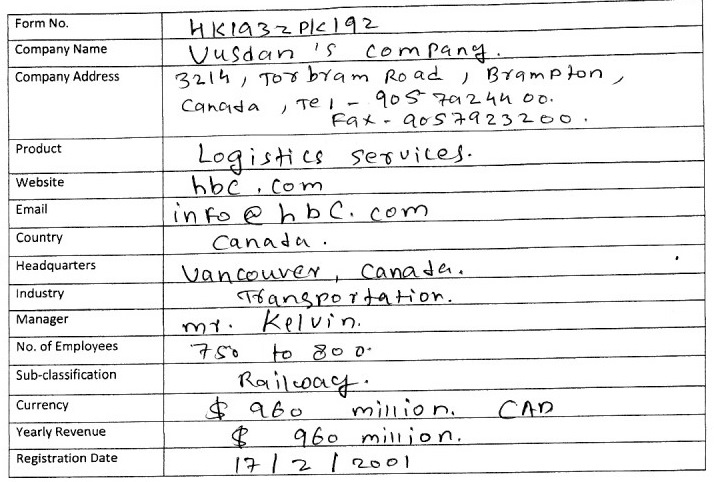 Form No. HK1932PK192
Company Name Vusdan's company.
Company Address 3214, Torbram Road, Brampton,
Canada, Tel - 9057924400.
Fax - 9057923200.
Product Logistics services.
Website hbc.com
Email info@hbc.com
Country Canada.
Headquarters Vancouver, Canada.
Industry Transportation.
Manager mr. Kelvin.
No. of Employees 750 to 800.
Sub-classification Railway.
Currency $ 960 million. CAD
Yearly Revenue $ 960 million.
Registration Date 17/2/2001